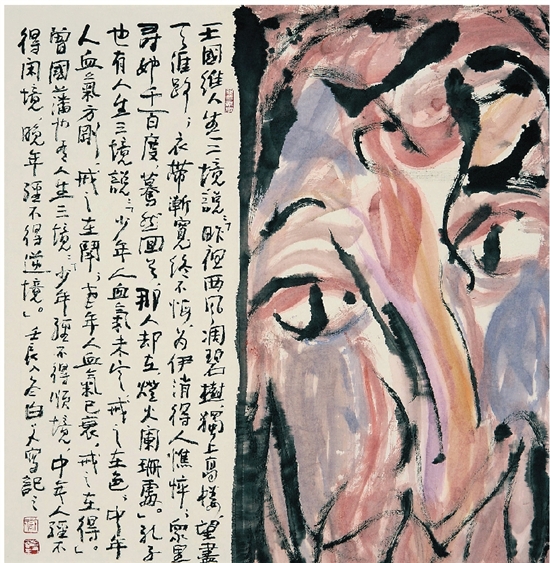 王國維人生三境說「昨夜西風凋碧樹獨上高樓望盡
天涯路；衣帶漸寬終不悔、為伊消得人憔悴；眾里
尋她千百度驀然回首、那人却在燈火闌珊處。」孔子
也有人生三境說「少年人血氣未定戒之在色，中年
人血氣方剛，戒之在鬥；老年人血氣已衰，戒之在得」。
曾國藩也有人生三境「少年經不得順境中年人經不
得閑境、晚年經不得逆境」。壬辰冬